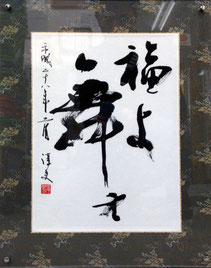 福よ
舞え
平成二十八年二月